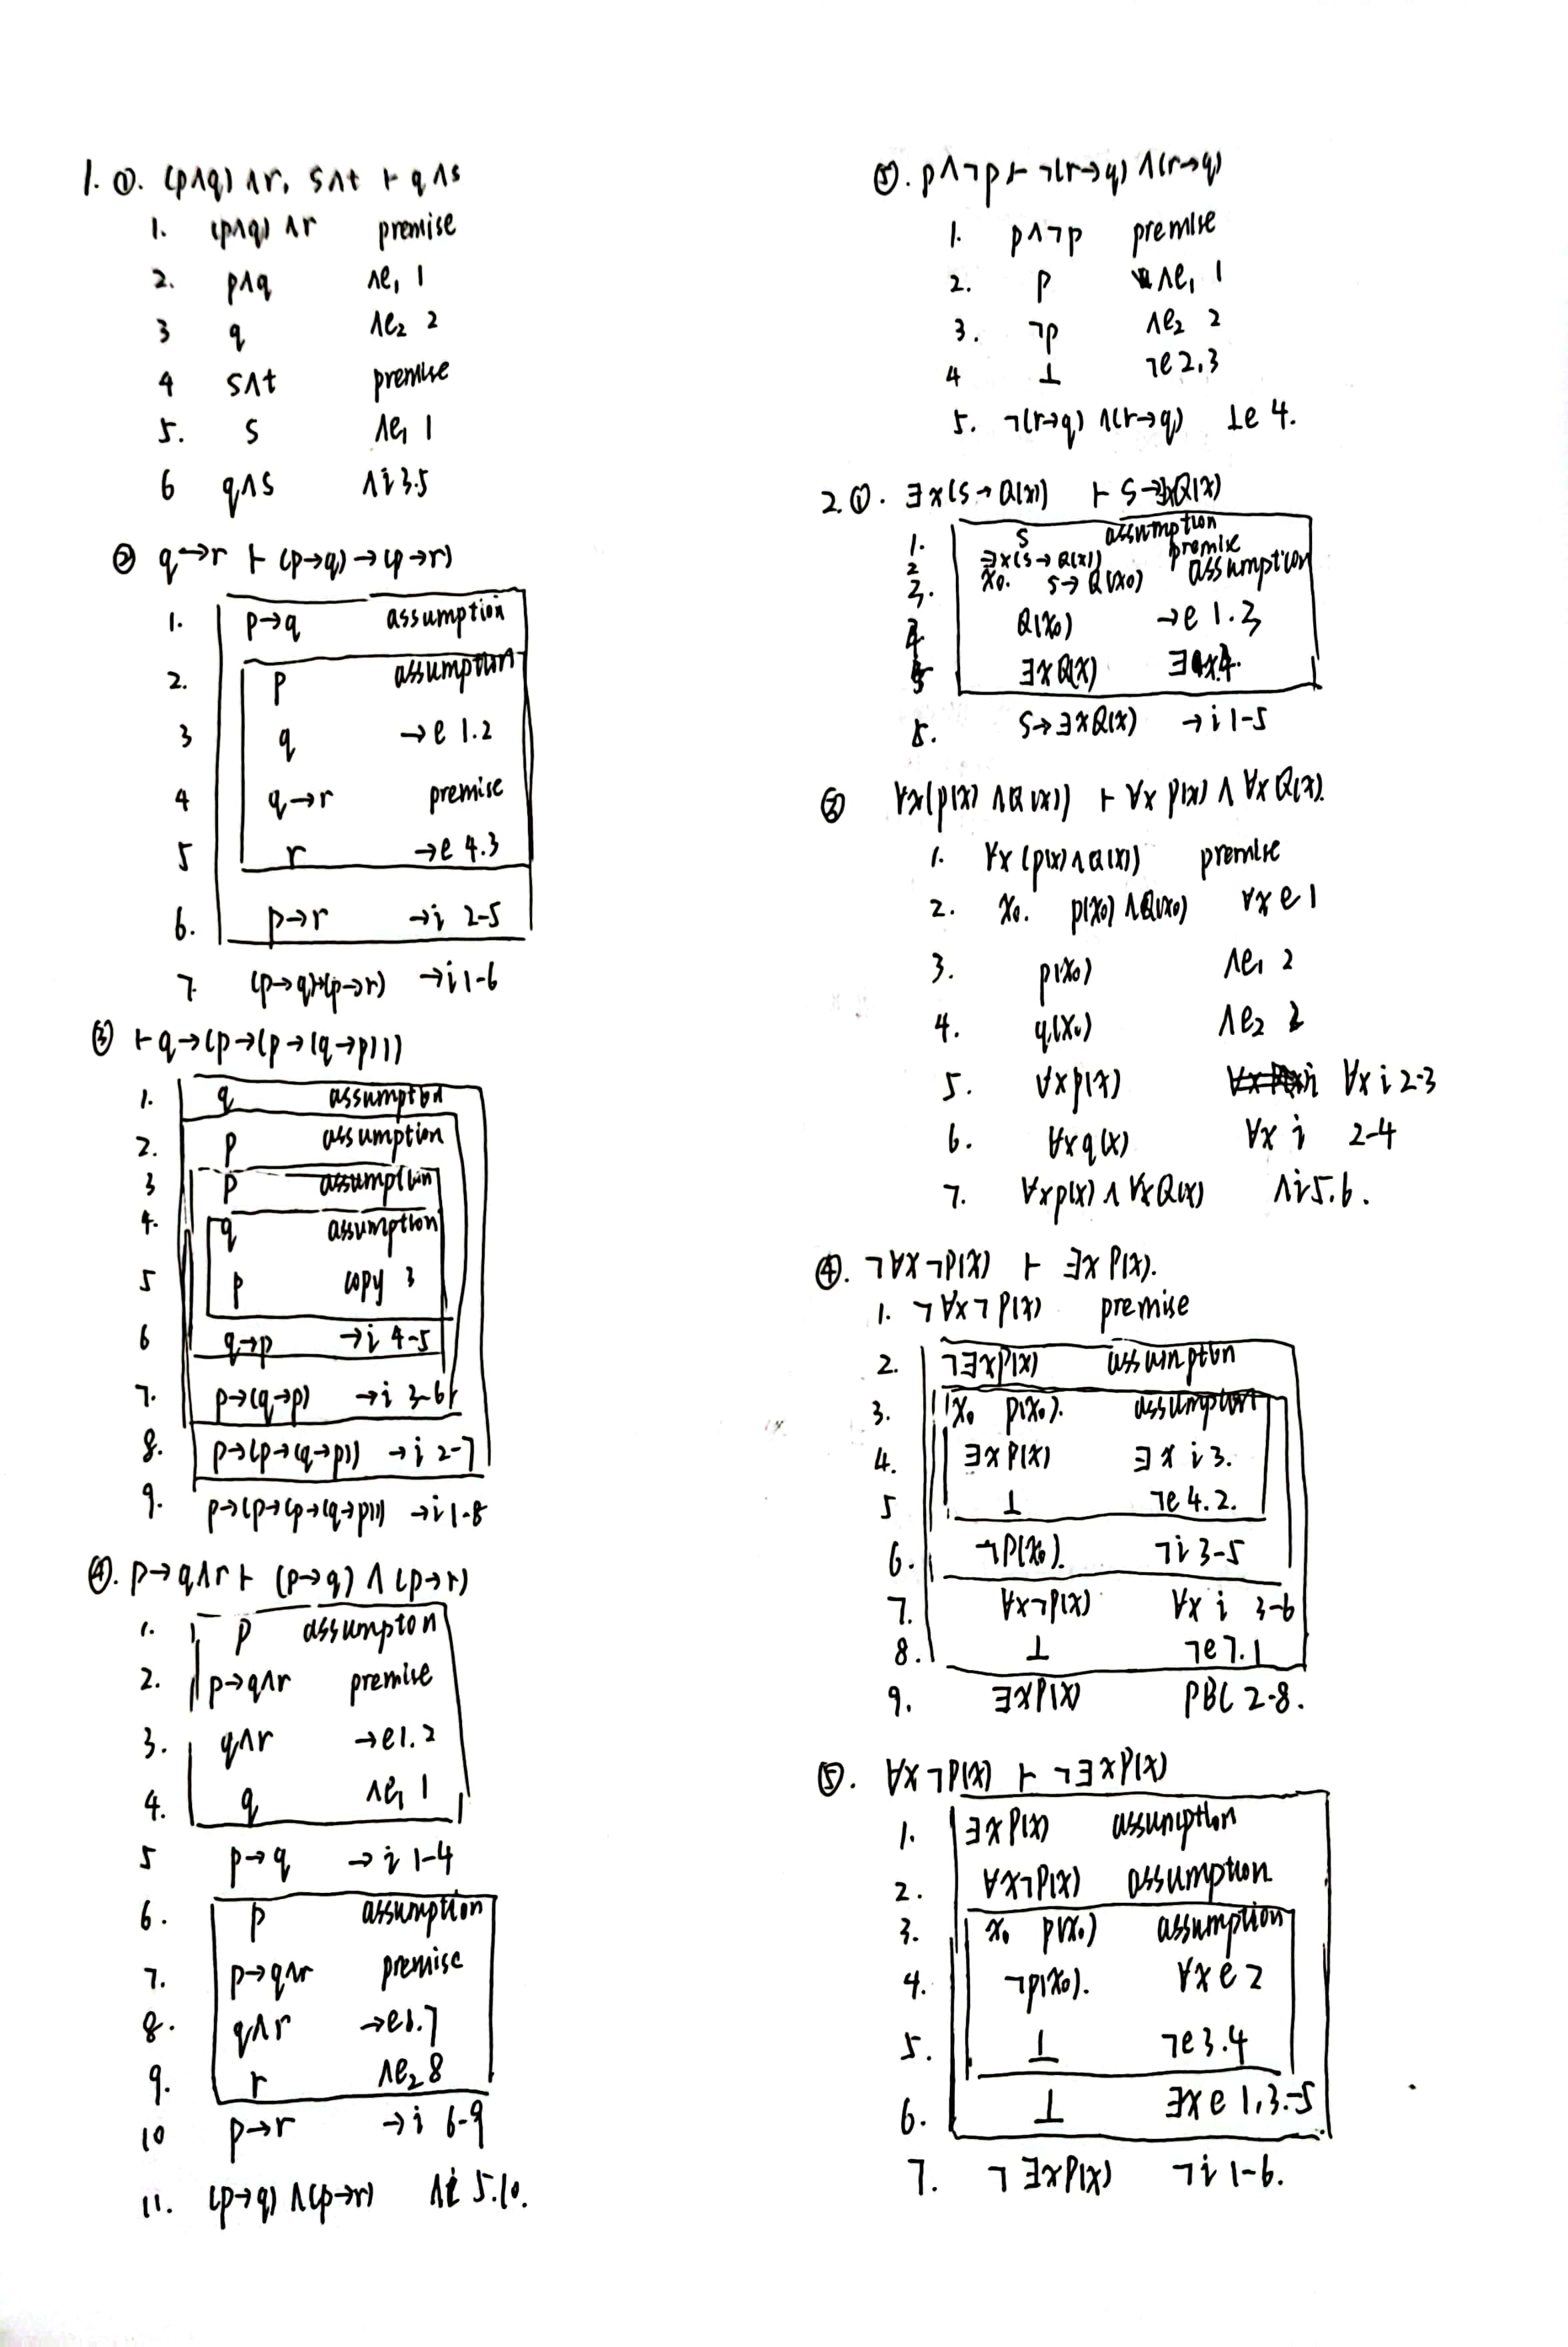 1. ①. (p∧q) ∧r, s∧t ⊢ q∧s
1. (p∧q) ∧r premise
2. p∧q ∧e₁ 1
3 q ∧e₂ 2
4 s∧t premise
5. s ∧e₁ 1
6 q∧s ∧i 3.5
② q→r ⊢ (p→q)→(p→r)
1. p→q assumption
2. p assumption
3 q →e 1.2
4 q→r premise
5 r →e 4.3
6. p→r →i 2-5
7. (p→q)→(p→r) →i 1-6
③ ⊢ q→(p→(p→(q→p)))
1. q assumption
2. p assumption
3 p assumption
4. q assumption
5 p copy 3
6 q→p →i 4-5
7. p→(q→p) →i 3-6
8. p→(p→(q→p)) →i 2-7
9. p→(p→(p→(q→p))) →i 1-8
④. p→q∧r ⊢ (p→q) ∧ (p→r)
1. p assumpton
2. p→q∧r premise
3. q∧r →e 1.2
4. q ∧e₁ 1
5 p→q →i 1-4
6. p assumption
7. p→q∧r premise
8. q∧r →e 6.7
9. r ∧e₂ 8
10 p→r →i 6-9
11. (p→q) ∧(p→r) ∧i 5.10.
⑤. p∧¬p ⊢ ¬(r→q) ∧(r→q)
1. p∧¬p premise
2. p ∧e₁ 1
3. ¬p ∧e₂ 2
4 ⊥ ¬e 2,3
5. ¬(r→q) ∧(r→q) ⊥e 4.
2. ①. ∃x(S→Q(x)) ⊢ S→∃xQ(x)
1. S assumption
2 ∃x(S→Q(x)) premise
3. x₀. S→Q(x₀) assumption
4 Q(x₀) →e 1.3
5 ∃xQ(x)
S→∃xQ(x) →i 1-5
② ∀x(p(x) ∧Q(x)) ⊢ ∀x p(x) ∧ ∀x Q(x).
1. ∀x (p(x)∧Q(x)) premise
2. x₀. p(x₀) ∧Q(x₀) ∀x e 1
3. p(x₀) ∧e₁ 2
4. q(x₀) ∧e₂ 2
5. ∀xp(x) ∀x i 2-3
6. ∀xq(x) ∀x i 2-4
7. ∀xp(x) ∧ ∀xQ(x) ∧i 5.6.
④. ¬∀x¬P(x) ⊢ ∃x P(x).
1. ¬∀x¬P(x) premise
2. ¬∃xP(x) assumption
3. x₀ P(x₀). assumption
4. ∃xP(x) ∃x i 3.
5 ⊥ ¬e 4.2.
6. ¬P(x₀). ¬i 3-5
7. ∀x¬P(x) ∀x i 3-6
8. ⊥ ¬e 7.1
9. ∃xP(x) PBC 2-8.
⑤. ∀x¬P(x) ⊢ ¬∃xP(x)
1. ∃xP(x) assumption
2. ∀x¬P(x) assumption
3. x₀ P(x₀) assumption
4. ¬P(x₀). ∀x e 2
5. ⊥ ¬e 3.4
6. ⊥ ∃x e 1,3-5
7. ¬∃xP(x) ¬i 1-6.